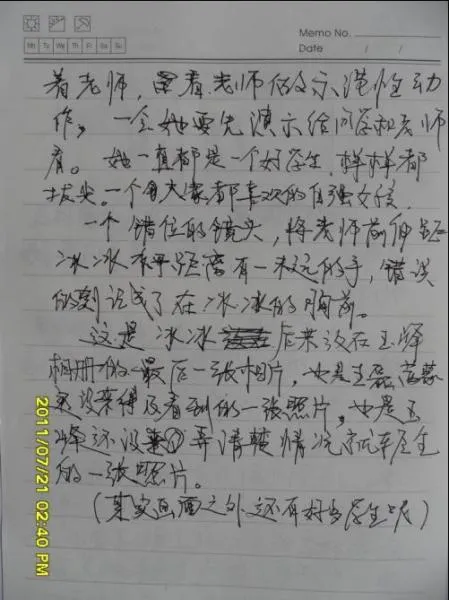 Memo No.
Date / /
Mo Tu We Th Fr Sa Su
着老师，看着老师做示范性动
作，一会她要先演示给同学和老师
看。她一直都是一个好学生，样样都
拔尖。一个令大家都喜欢的自强女孩。
一个错位的镜头，将老师前伸距
冰冰水平距离有一米远的手，错误
的刻识成了在冰冰的胸前。
这是冰冰后来放在玉峰
相册的最后一张相片，也是
没来得及看到的一张照片，也是玉
峰还没弄清楚情况就
的一张照片。
（其实画面之外还有好多学生呢）
2011/07/21 02:40 PM